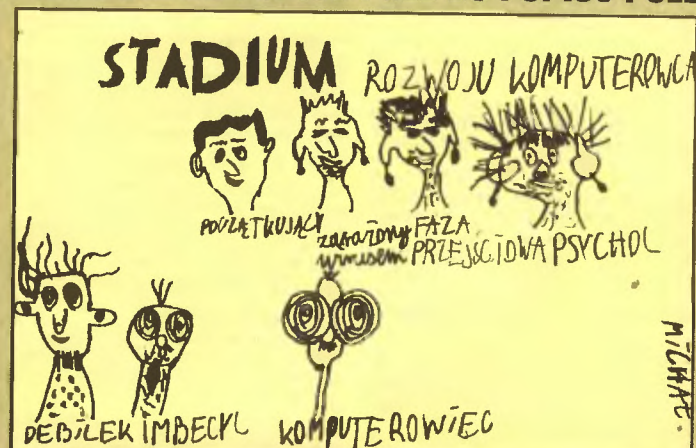 STADIUM ROZWOJU KOMPUTEROWCA
POCZĄTKUJĄCY
zarażony wirusem
FAZA PRZEJŚCIOWA
PSYCHOL
DEBILEK
IMBECYL
KOMPUTEROWIEC
MICHAŁ.